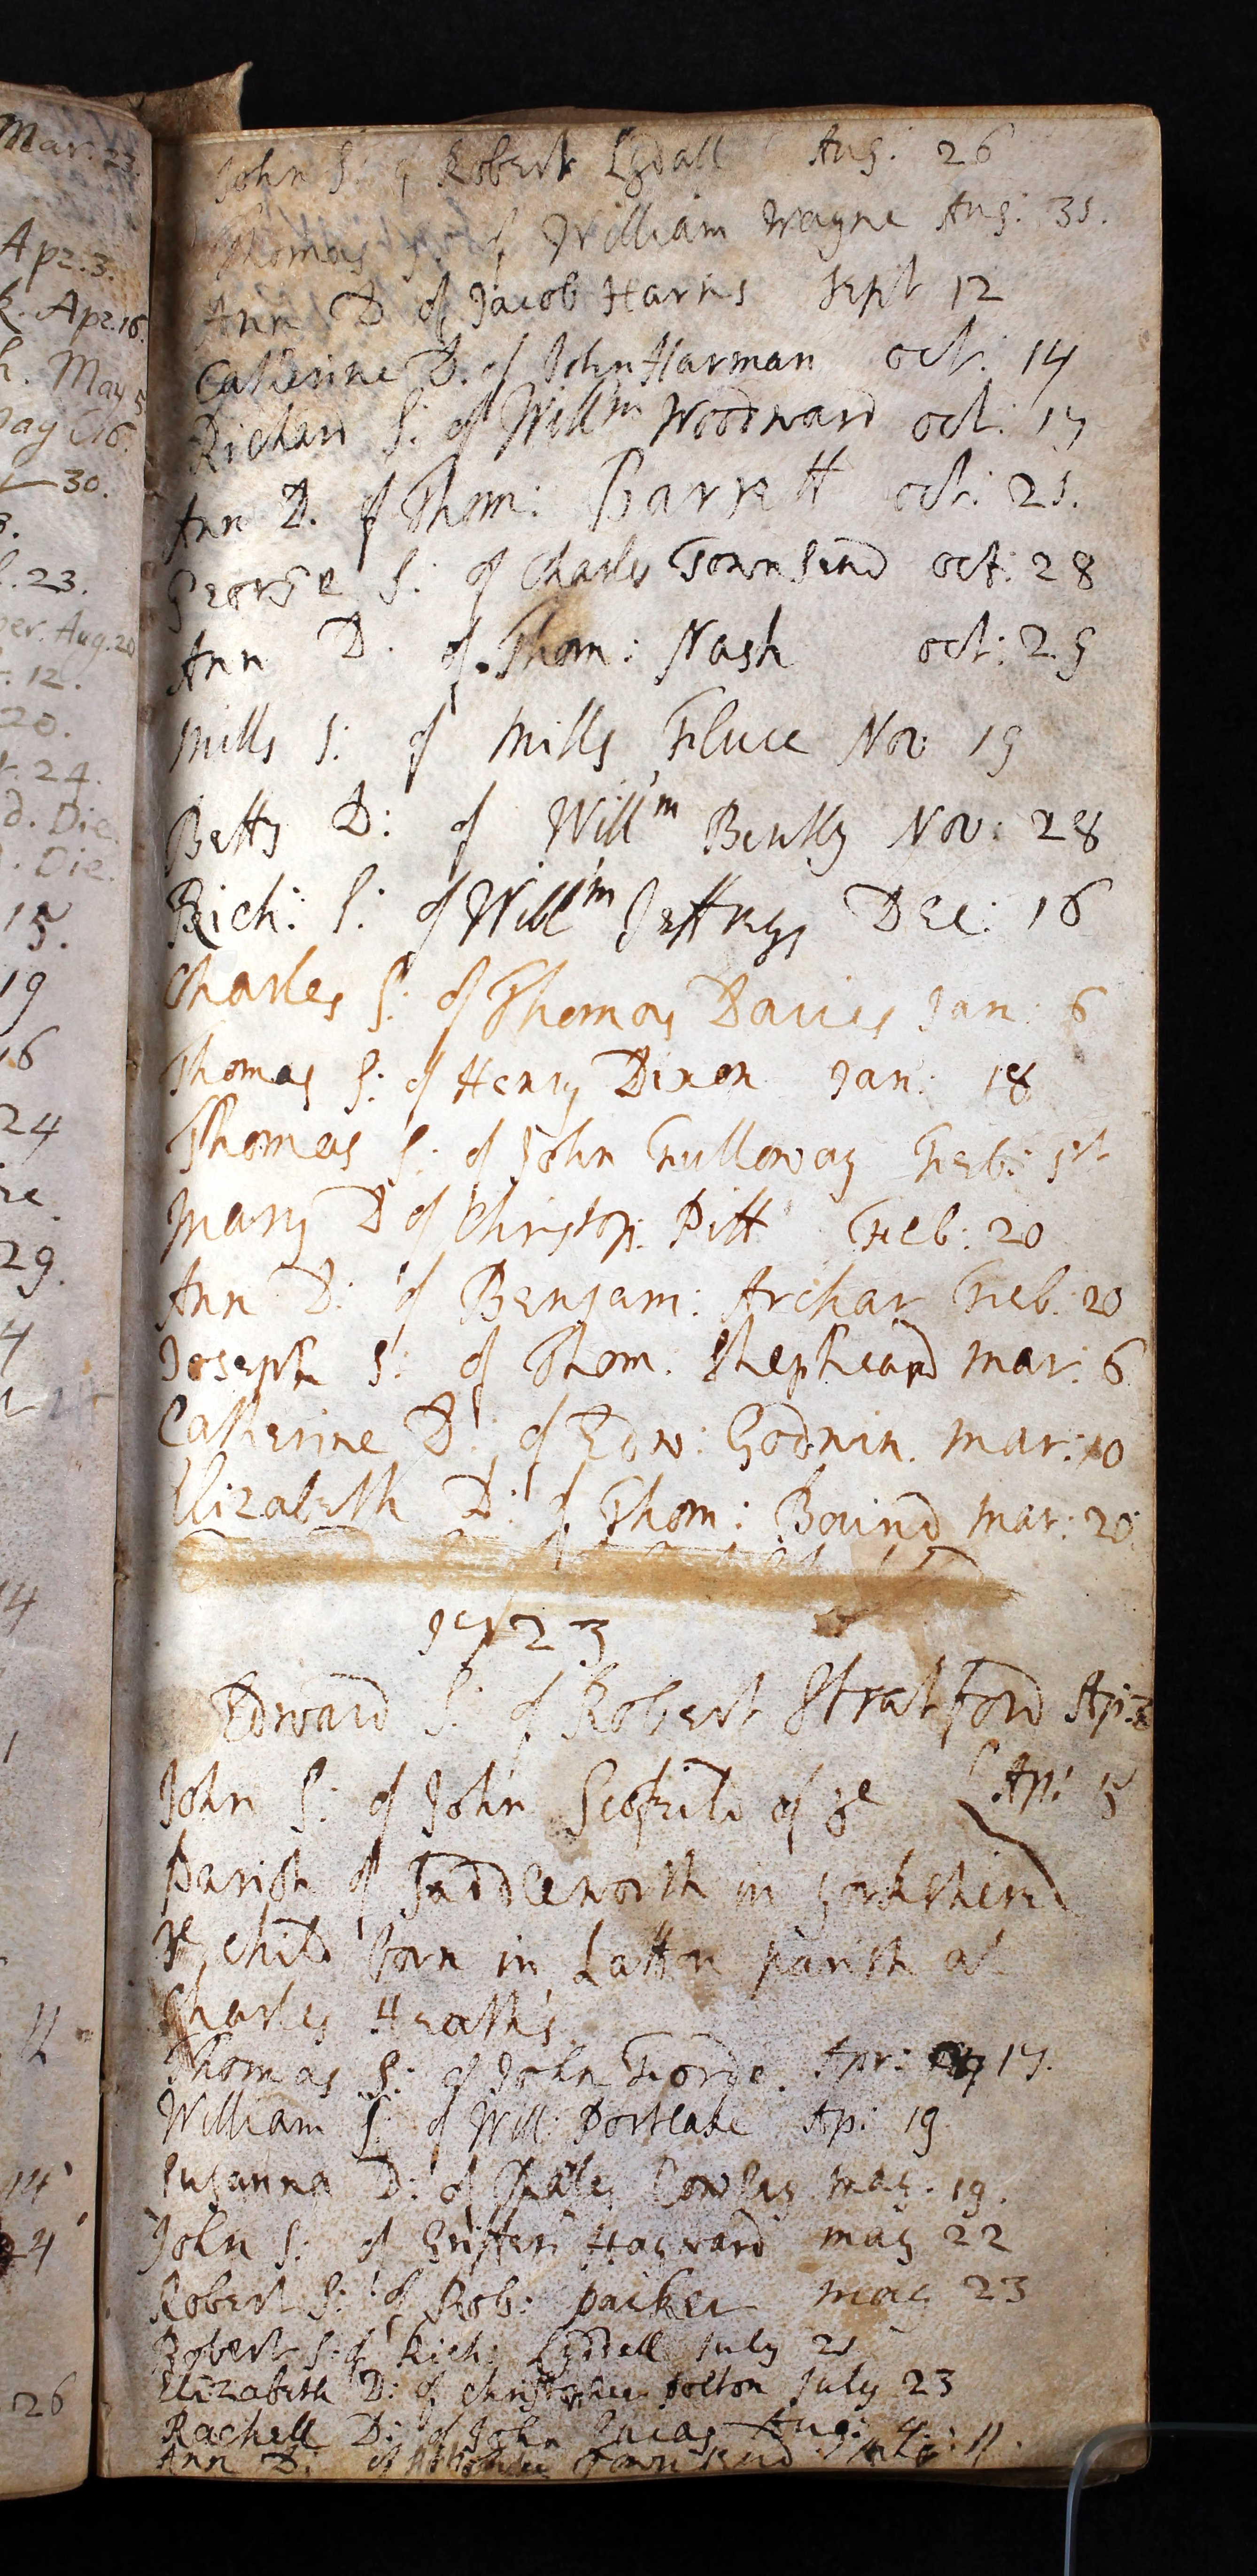 Mar. 23.
Apr. 3.
k. Apr. 16.
h. May 5
30.
23.
Aug. 20
12.
20.
24.
d. Die.
Die.
15.
19
16
24
29.
4
14
11
14
4
26
John S: of Robert Lydall Aug: 26
Thomas S: of William Wayne Aug: 31.
Ann D of Jacob Harris Sept 12
Catherine D. of John Harman oct: 14
Richard S: of Willm Woodward oct: 17
Ann D. of Thom: Barrett oct: 21.
George S: of Charles Townsend oct: 28
Ann D. of Thom: Nash oct: 29
Mills S: of Mills Fluce Nov 19
Betty D: of Willm Bently Nov: 28
Rich: S: of Willm Jeffreys Dec: 16
Charles S: of Thomas Davies Jan: 6
Thomas S: of Henry Dixon Jan: 18
Thomas S: of John Fulloway Feb: 1st
Mary D of Christop: Pitt Feb: 20
Ann D: of Benjam: Archar Feb: 20
Joseph S: of Thom. Shepheard Mar: 6
Catherine D: of Edw: Godwin. Mar: 10
Elizabeth D: of Thom: Bound Mar: 20
1723
Edward S: of Robert Stratford Ap:
John S: of John Scofeild of ye Ap: 15
Parish of Saddleworth in yorksheird
ye child born in Latton parish at
Charles Heath's
Thomas S: of John Forde. Apr: 17.
William S: of Will: Portlake Ap: 19
Susanna D: of Cowley may. 19.
John S: of Griffen Hayward may 22
Robert S: of Rob: packer may 23
Robert S: of Rich: Lyddell July 21
Elizabeth D: of Christopher bolton July 23
Rachell D: of John Lucas Aug: 4:
Ann D: of Townsend 11.